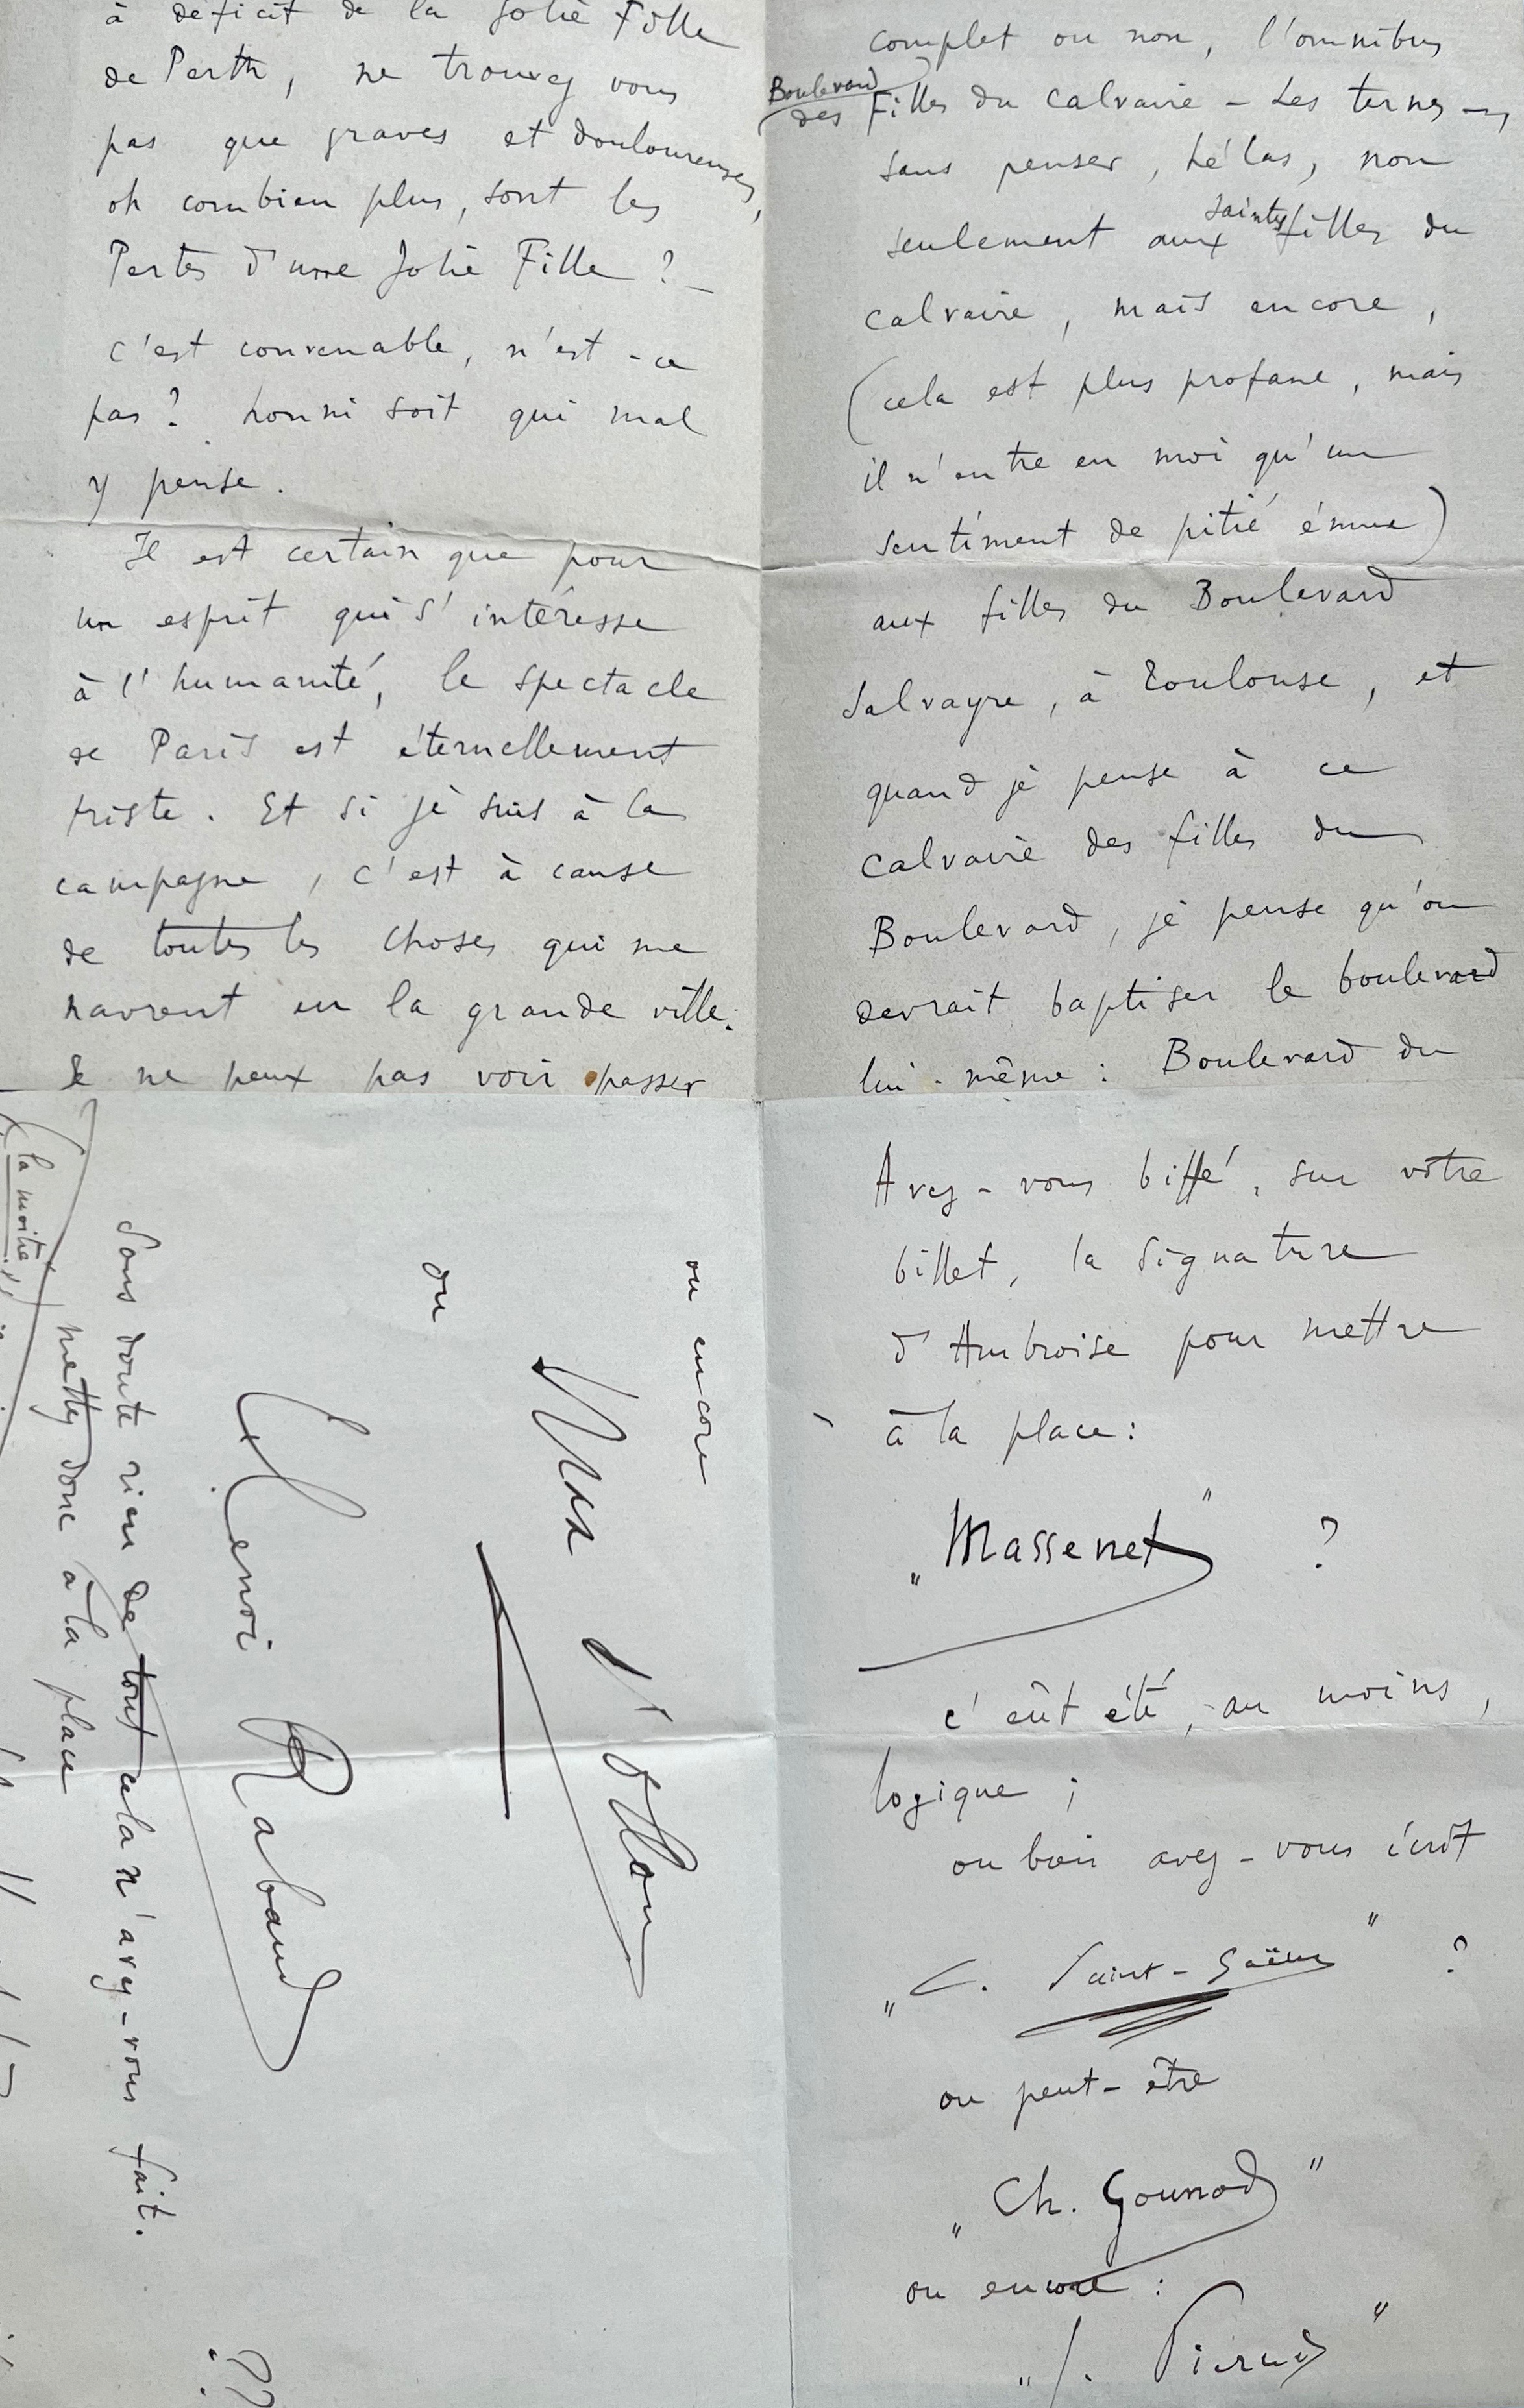 à déficit de la Jolie Fille
de Perth, ne trouvez vous
pas que graves et douloureuses,
oh combien plus, sont les
Pertes d'une Jolie Fille ? _
C'est convenable, n'est-ce
pas ? honni soit qui mal
y pense.
Il est certain que pour
un esprit qui s'intéresse
à l'humanité, le spectacle
de Paris est éternellement
triste. Et si je suis à la
campagne, c'est à cause
de toutes les choses qui me
navrent en la grande ville.
Je ne peux pas voir passer
complet ou non, l'omnibus
Boulevard
des Filles du Calvaire - Les Ternes -,
sans penser, hélas, non
seulement aux saintes filles du
Calvaire, mais encore,
(cela est plus profane, mais
il n'entre en moi qu'un
sentiment de pitié émue)
aux filles du Boulevard
Salvayre, à Toulouse, et
quand je pense à ce
calvaire des filles du
Boulevard, je pense qu'on
devrait baptiser le boulevard
lui-même : Boulevard du
ou encore
Max d'Ollone
ou
Henri Rabaud
Sans doute rien de tout cela n'avez-vous fait.
mettez donc à la place
la moitié
??
Avez-vous biffé, sur votre
billet, la signature
d'Ambroise pour mettre
à la place :
"Massenet" ?
c'eût été, au moins,
logique ;
ou bien avez-vous écrit
"C. Saint-Saëns" ?
ou peut-être
"Ch. Gounod"
ou encore :
"G. Pierné"